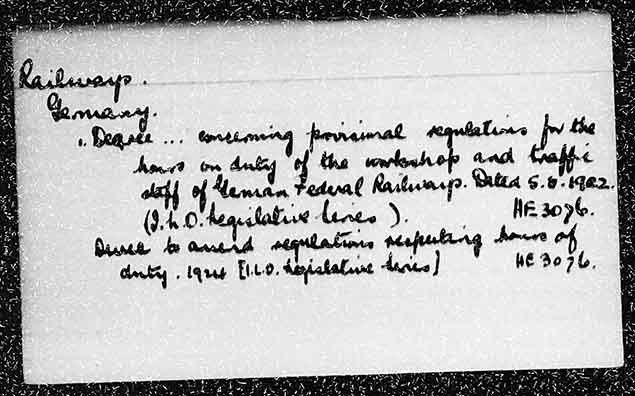 Railways.
Germany.
1. Decree ... concerning provisional regulations for the
hours on duty of the workshop and traffic
staff of German Federal Railways. Dated 5.8.1922.
(I.L.O. Legislative Series). HE 3076.
Decree to amend regulations respecting hours of
duty. 1924 [I.L.O. Legislative Series] HE 3076.